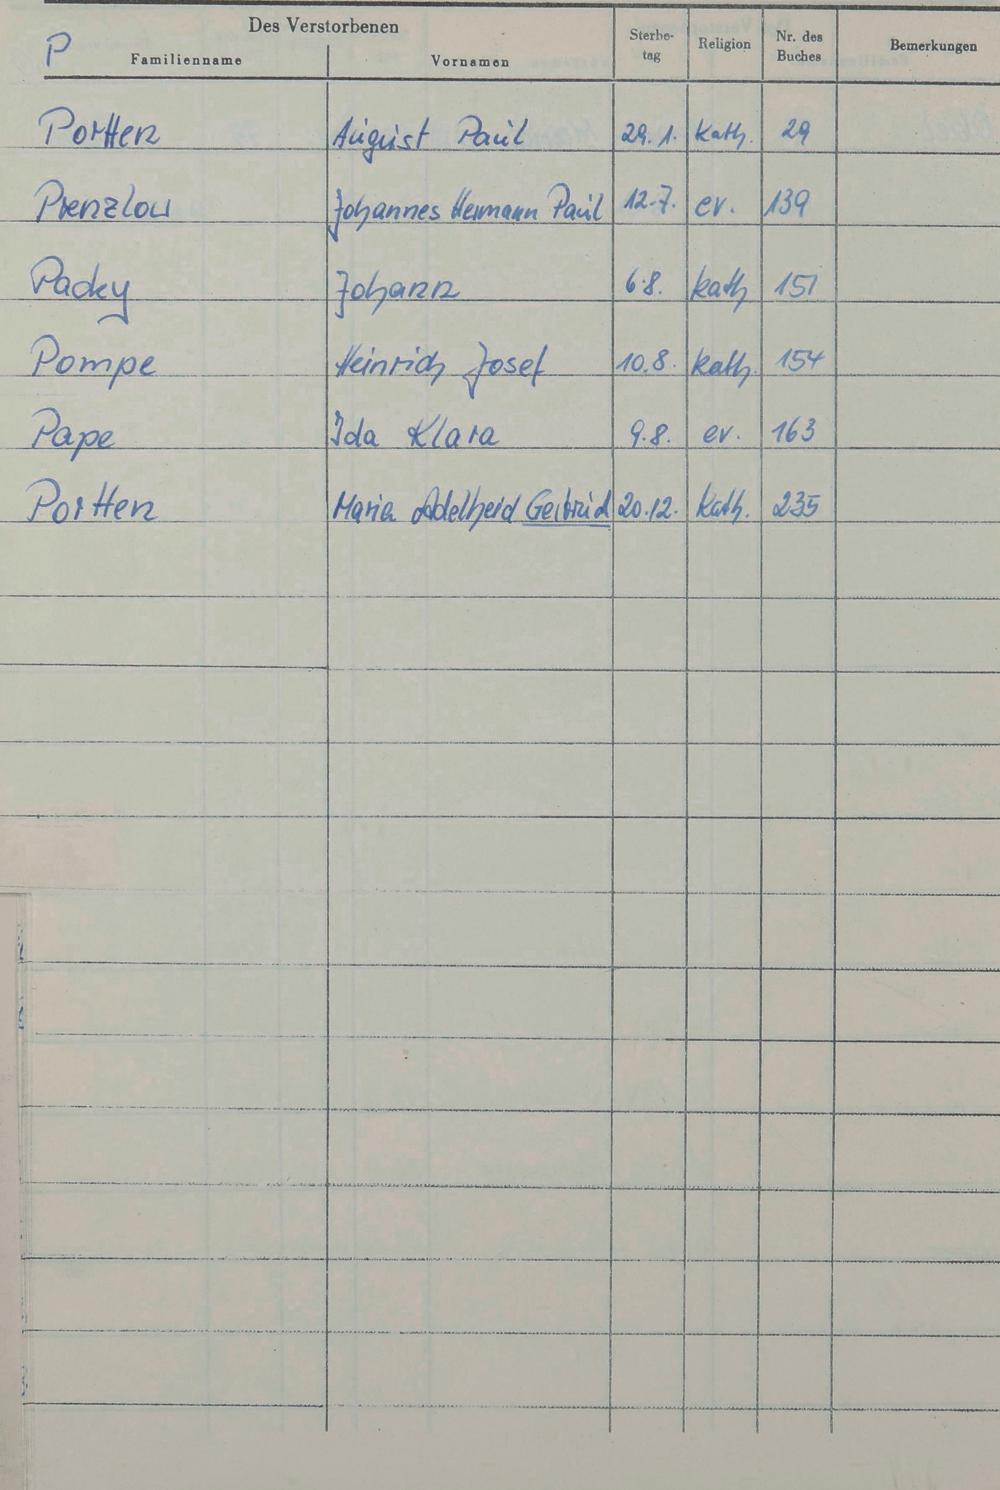 P
Des Verstorbenen
Familienname Vornamen Sterbe-tag Religion Nr. des Buches Bemerkungen
Portten August Paul 29.1. kath. 29
Prenzlow Johannes Hermann Paul 12.7. ev. 139
Packy Johann 6.8. kath 151
Pompe Heinrich Josef 10.8. kath. 154
Pape Ida Klara 9.8. ev. 163
Portten Maria Adelheid Gertrud 20.12. kath. 235